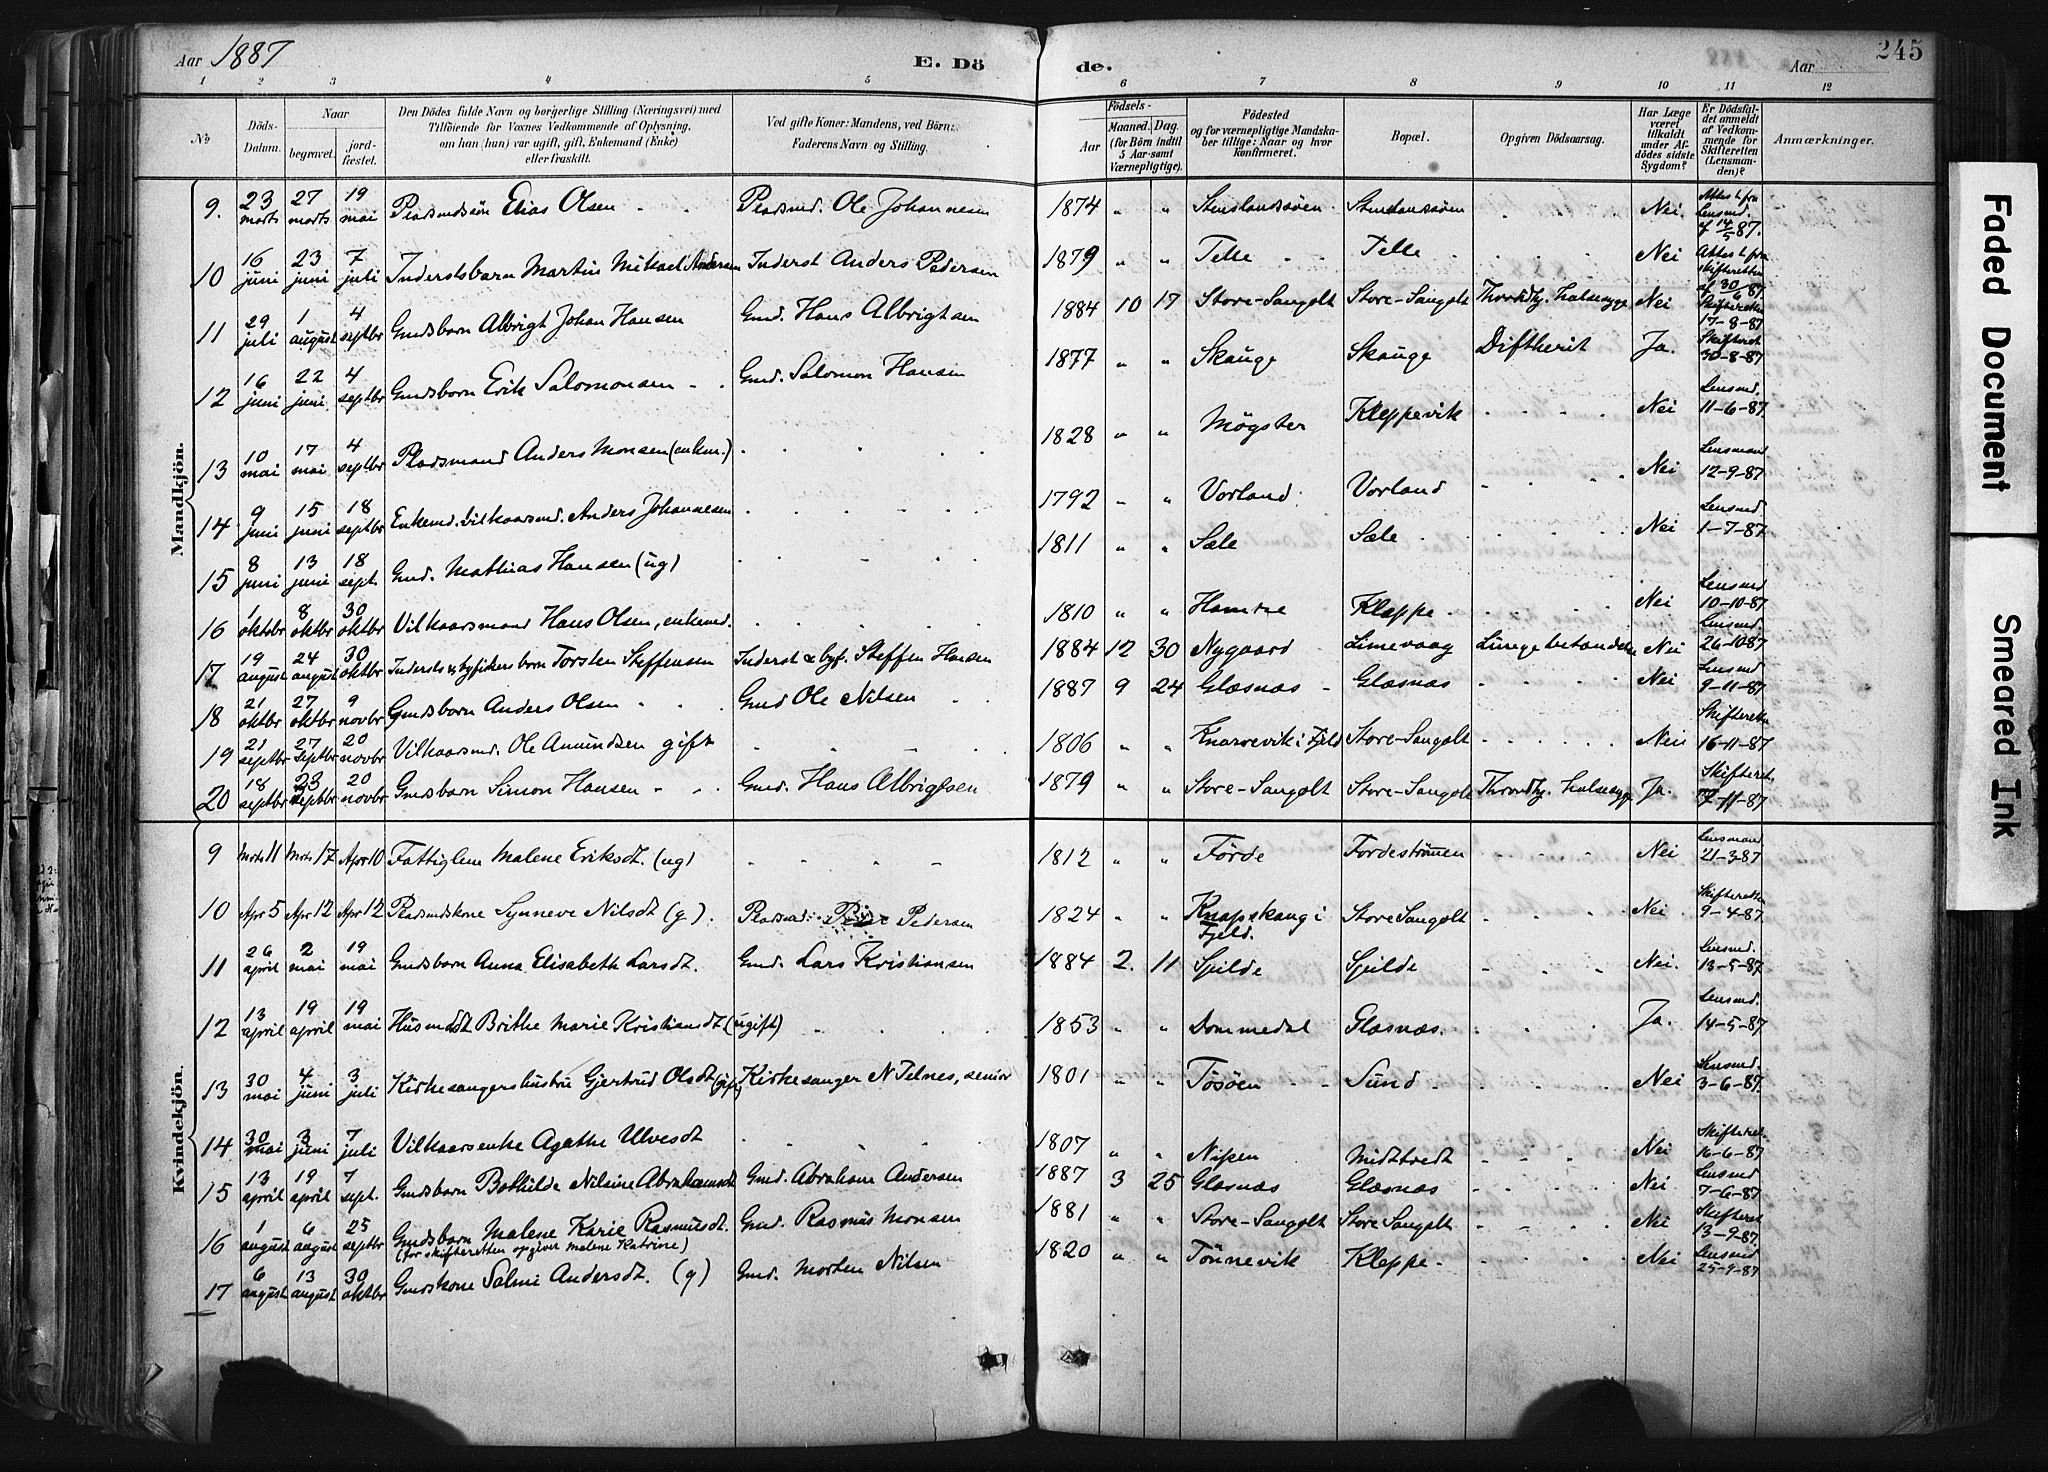 Aar 1887 E. Dö de. Aar 245
1 2 3 4 5 6 7 8 9 10 11 12
No
Döds-Datum.
Naar
begravet.
jord-fæstet.
Den Dödes fulde Navn og borgerlige Stilling (Næringsvei) med
Tilföiende for Voxnes Vedkommende af Oplysning,
om han (hun) var ugift, gift, Enkemand (Enke)
eller fraskilt.
Ved gifte Koner: Mandens, ved Börn:
Faderens Navn og Stilling.
Födsels-
Aar
Maaned. Dag.
(for Börn indtil
5 Aar samt
Værnepligtige).
Födested
og for værnepligtige Mandska-
ber tillige: Naar og hvor
konfirmeret.
Bopæl.
Opgiven Dödsaarsag.
Har Læge
været
tilkaldt
under Af-
dödes sidste
Sygdom?
Er Dödsfal-
det anmeldt
af Vedkom-
mende for
Skifteretten
(Lensman-
den)?
Anmærkninger.
Mandkjön.
9. 23 marts 27 marts 19 mai Pladsmdssön Elias Olsen Pladsmd. Ole Johannesen 1874 " " Stenslandsöen Nei. Attest fra Lensmd. af 14/5 87.
10 16 juni 23 juni 7 juli Inderstsbarn Martin Mikael Andersen Inderst Anders Pedersen 1879 " " Telle Telle Nei Attest fra skifteretten af 30/6 87.
11 29 juli 1 august 4 septbr Gmdsbarn Albrigt Johan Hansen Gmd. Hans Albrigtsen 1884 10 17 Store-Sangolt Store-Sangolt halsesyge Nei Skifteretten 17-8-87
12 16 juni 22 juni 4 septbr Gmdsbarn Erik Salomonsen Gmd. Salomon Hansen 1877 " " Skauge Skauge Difterit Ja. Skifteret 30-8-87
13 10 mai 17 mai 4 septbr Pladsmand Anders Monsen (enkm.) 1828 " " Mögster Kleppevik Nei Lensmd. 11-6-87.
14 9 juni 15 juni 18 septbr Enkemd. vilkaarsmd. Anders Johannesen 1792 " " Vorland Vorland Nei Lensmand 12-9-87
15 8 juni 13 juni 18 sept. Gmd. Mathias Hansen (ug) 1811 " " Sæle Sæle Nei Lensmd 1-7-87.
16 1 oktobr 8 oktbr 30 oktbr Vilkaarsmand Hans Olsen, enkemd. 1810 " " Hamre Kleppe Nei Lensmd 10-10-87
17 19 august 24 august 30 oktbr Torsten Steffensen Inderst Steffen Hansen 1884 12 30 Nygaard Limevaag Nei Lensmd. 26-10 87
18 21 oktbr 27 oktbr 9 novbr Gmdsbarn Anders Olsen Gmd Ole Nilsen 1887 9 24 Glæsnæs Glæsnæs Nei Lensmd 9-11-87
19 21 septbr 27 septbr 20 novbr Vilkaarsmd. Ole Amundsen gift 1806 " " Knarrevik i Fjeld Store-Sangolt Nei Skifteretten 16-11-87
20 18 septbr 23 septbr 20 novbr Gmdsbarn Simon Hansen Gmd. Hans Albrigtsen 1879 " " Store-Sangolt Store-Sangolt halsesyge Ja. Skifteret. 17-11-87
Kvindekjön.
9 Mrts 11 Mrts 17 Apr 10 Fattiglem Malene Eriksdt. (ug) 1812 " " Förde Fordeströmen Nei Lensmand 21-3-87
10 Apr 5 Apr 12 Apr 12 Pladsmdskone Synneve Nilsdt (g). Pladsmd. Pedersen 1824 " " Knapskaug i Fjeld. Store Sangolt Nei Skifteretten 9-4-87.
11 26 april 2 mai 19 mai Gmdsbarn Anna Elisabeth Larsdt. Gmd. Lars Kristiansen 1884 2. 11 Spilde Spilde Nei. Lensmd. 13-5-87.
12 13 april 19 april 19 mai Husmdsdt. Brithe Marie Kristiansdt (ugift) 1853 " " Dommedal Glæsnæs. Ja. Lensmd. 14-5-87.
13 30 mai 4 juni 3 juli Kirkesangershustru Gjertrud Olsdt (gift) Kirkesanger N Telnes, senior 1801 " " Tösöen Sund Nei Lensmd. 3-6-87.
14 30 mai 3 juni 7 juli Vilkaarsenke Agathe Ulvesdt 1807 " " Nipen Midttvedt Nei Skifteret. 16-6-87
15 13 april 19 april 7 sept. Gmdsbarn Bothilde Nilsine Abrahamsdt Gmd. Abraham Andersen 1887 3 25 Glæsnæs Glæsnæs Nei Lensmd 7-6-87
16 1 august 6 august 25 septbr Gmdsbarn Malene Karie Rasmusdt. Gmd. Rasmus Monsen 1881 " " Store-Sangolt Store Sangolt Nei Skifteret 13-9-87.
(for skifteretten opgiver Malene Katrine)
17 6 august 13 august 30 oktbr Gmdskone Salmi Andersdt. (g) Gmd. Morten Nilsen 1820 " " Tönnevik Kleppe Nei Lensmd 25-9-87
Faded Document
Smeared Ink